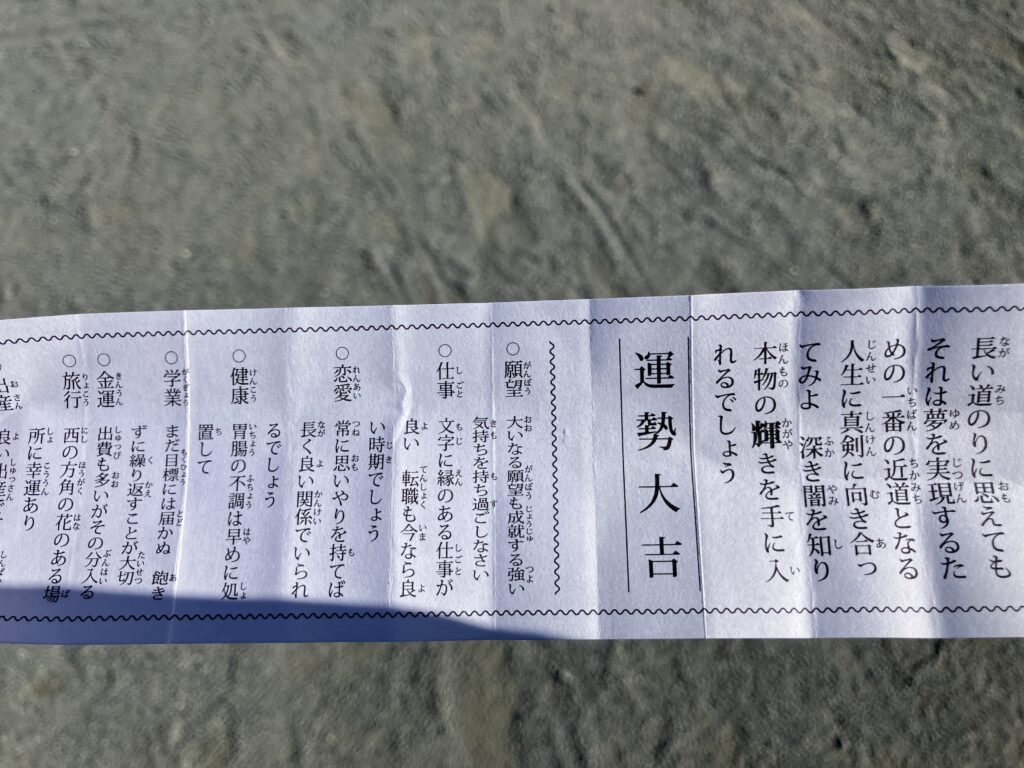 長い道のりに思えても
それは夢を実現するた
めの一番の近道となる
人生に真剣に向き合っ
てみよ　深き闇を知り
本物の輝きを手に入
れるでしょう
運勢大吉
○願望　大いなる願望も成就する強い
気持ちを持ち過ごしなさい
○仕事　文字に縁のある仕事が
良い　転職も今なら良
い時期でしょう
○恋愛　常に思いやりを持てば
長く良い関係でいられ
るでしょう
○健康　胃腸の不調は早めに処
置して
○学業　まだ目標には届かぬ　飽き
ずに繰り返すことが大切
○金運　出費も多いがその分入る
○旅行　西の方角の花のある場
所に幸運あり
○出産　良い出産で